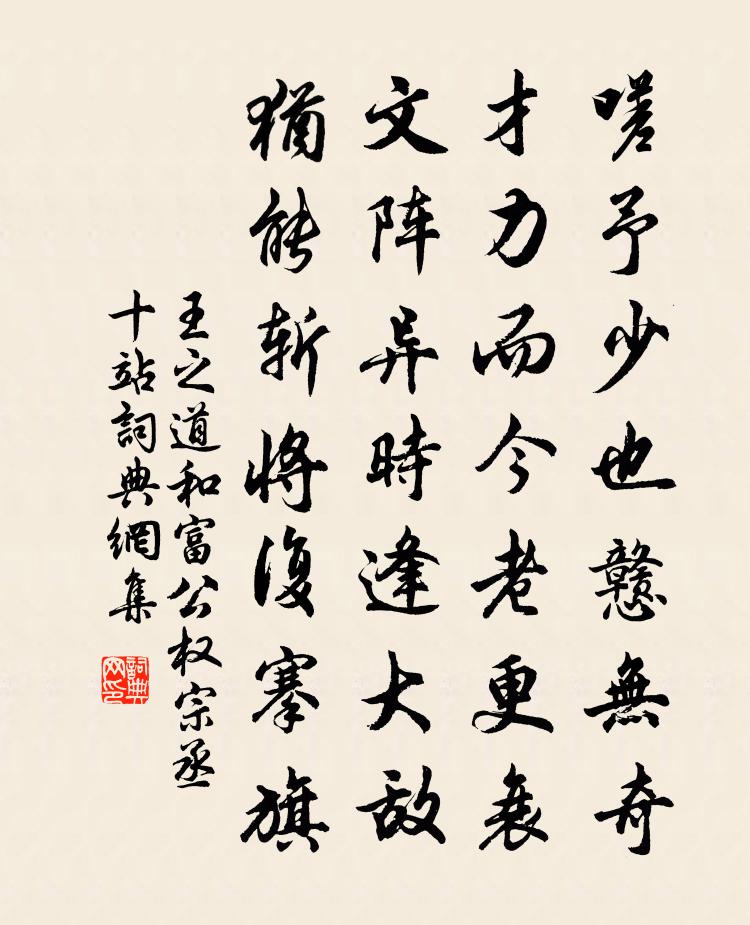 嗟予少也戆無奇
才力而今老更衰
文阵异時逢大敌
猶能斩將復搴旗
王之道和富公权宗丞
十站詞典網集
詞典网印